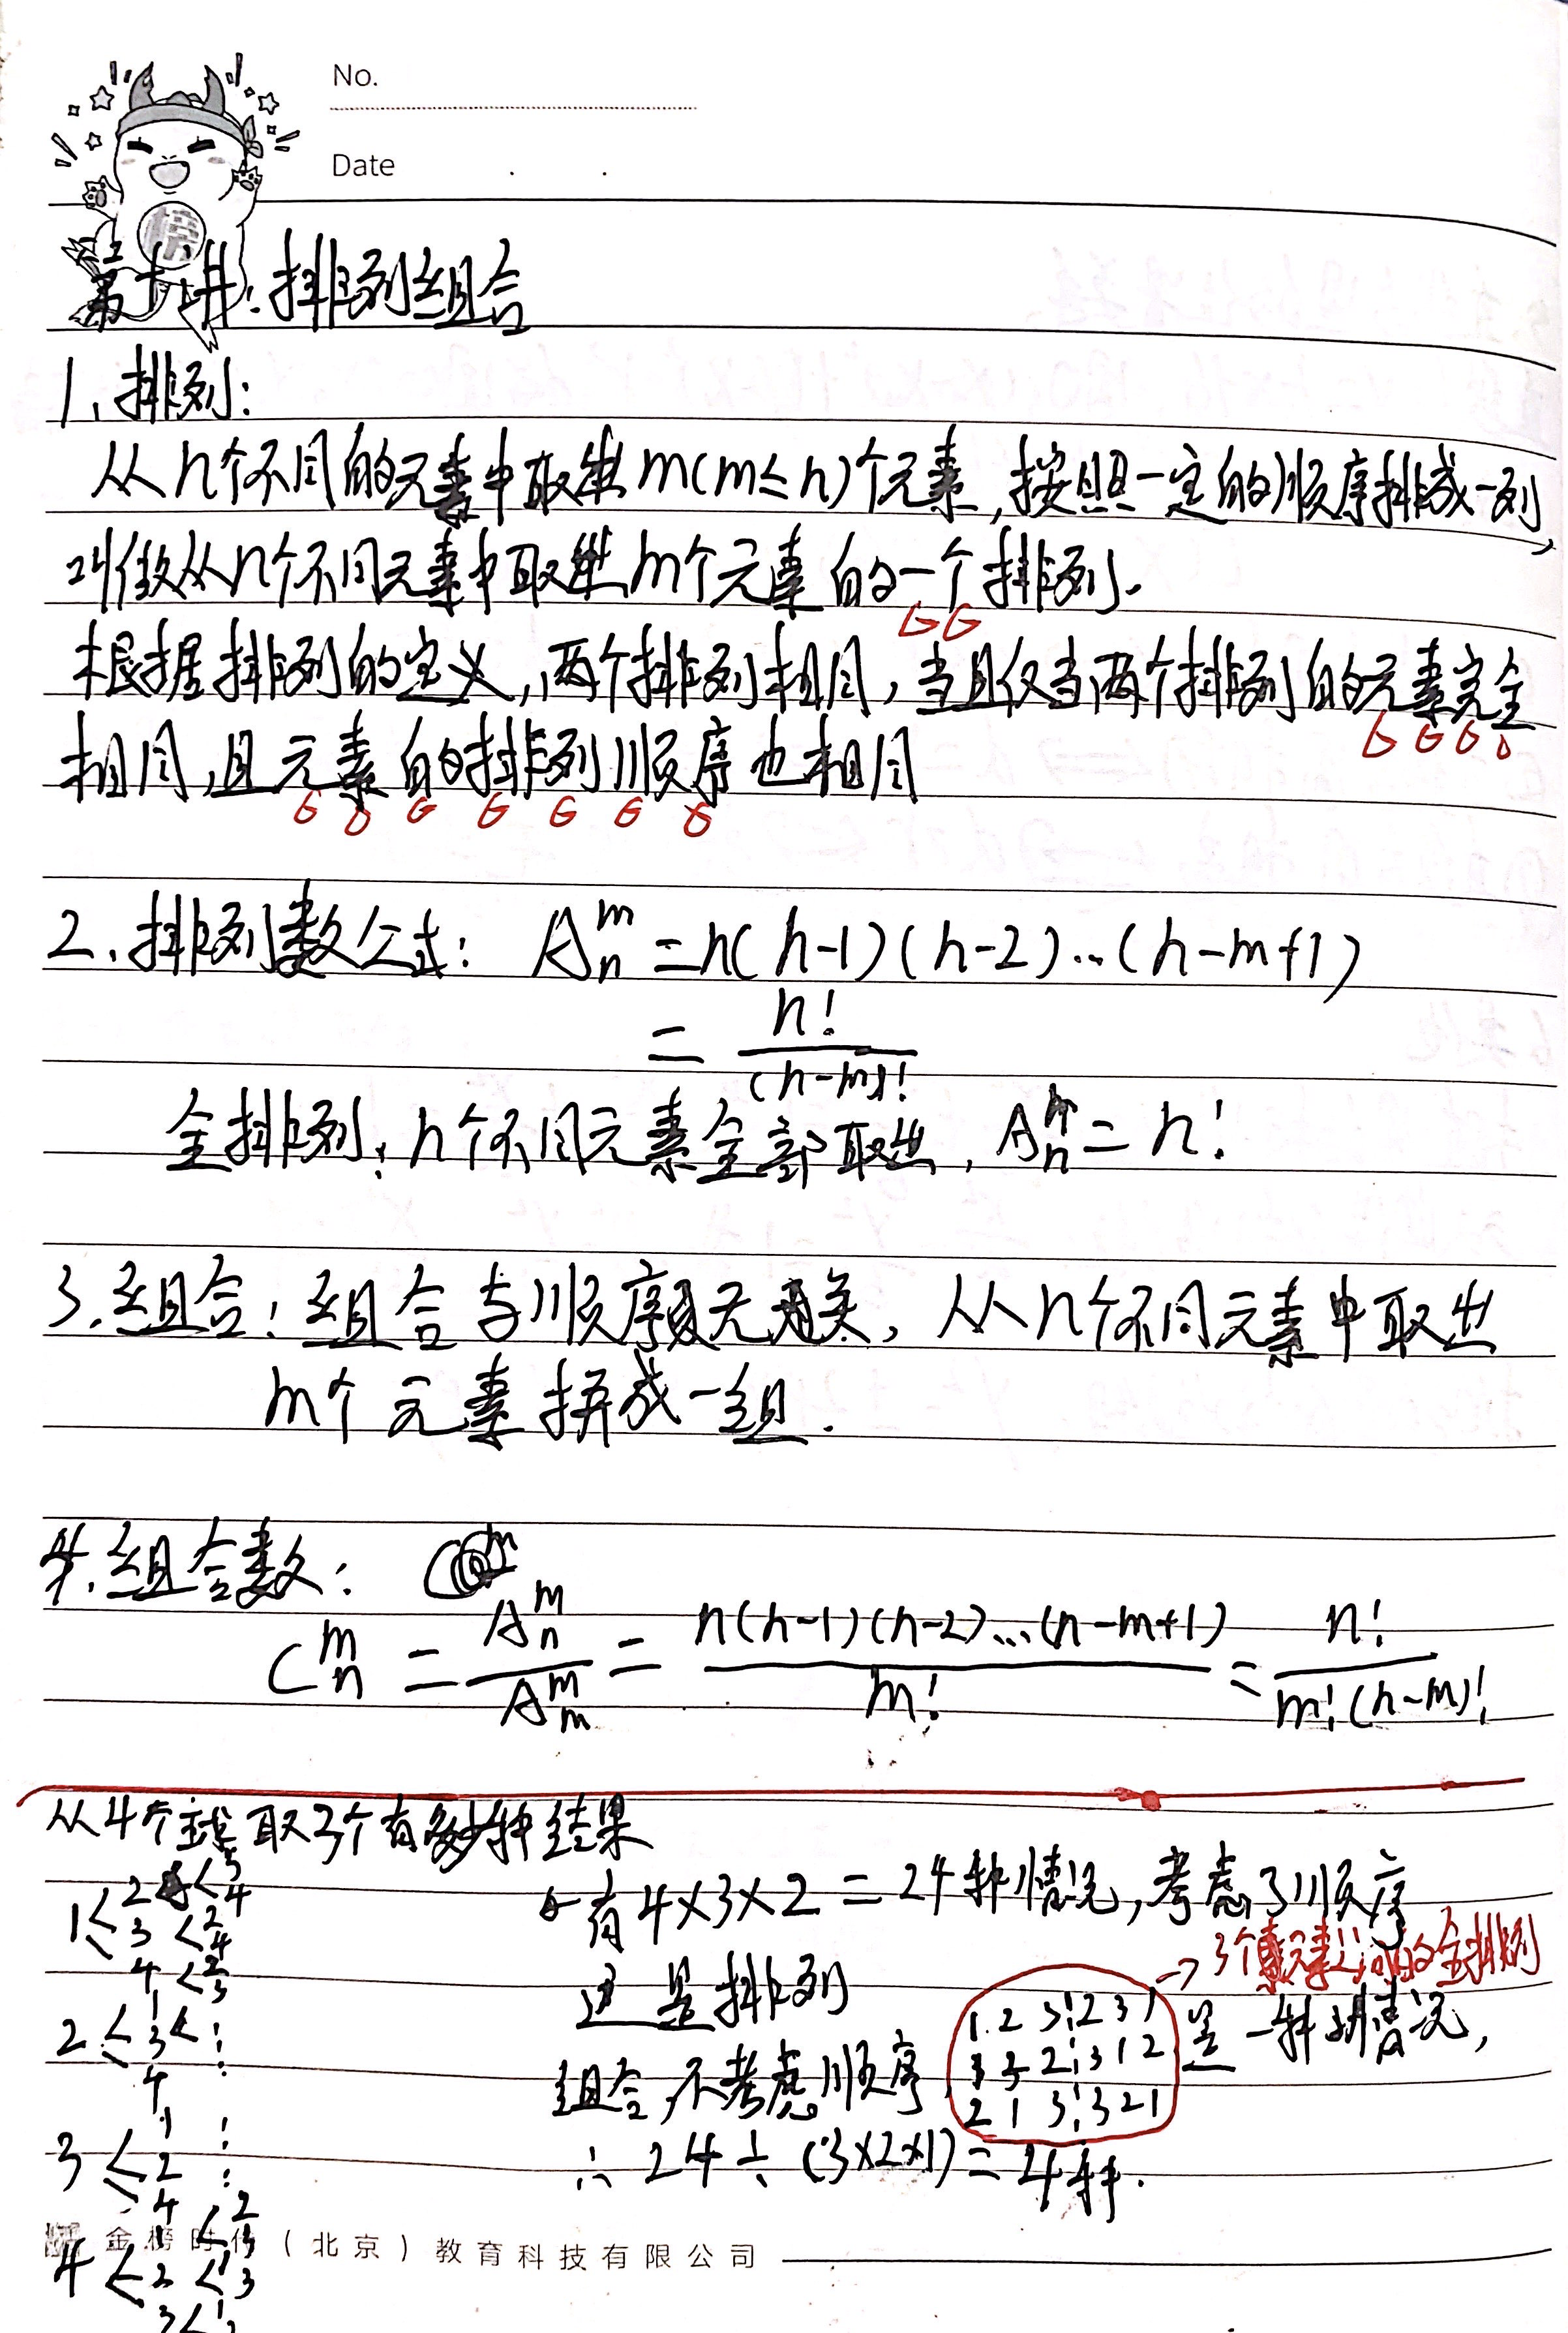 No.
Date
第六讲:排列组合
1、排列:
从n个不同的元素中取出m(m≤n)个元素,按照一定的顺序排成一列,
叫做从n个不同元素中取出m个元素的一个排列.
根据排列的定义,两个排列相同,当且仅当两个排列的元素完全
相同,且元素的排列顺序也相同
2.排列数公式: Aₙᵐ = n(n-1)(n-2)…(n-m+1)
= n!/(n-m)!
全排列:n个不同元素全部取出,Aₙⁿ = n!
3.组合:组合与顺序无关,从n个不同元素中取出
m个元素拼成一组.
4.组合数:
Cₙᵐ = Aₙᵐ/Aₘᵐ = n(n-1)(n-2)…(n-m+1)/m! = n!/m!(n-m)!
从4个球取3个有多少种结果
1< 2 < 3 4
3 < 2 4
4 < 2 3
2 < 1 3 < ⋮
4
3 < 1 2 ⋮
4
4 < 1 < 2 3
2 < 1 3
3 < 1 2
有4×3×2=24种情况,考虑了顺序
这是排列
→3个元素之间的全排列
组合,不考虑顺序,
1 2 3 ⋮ 2 3 1
1 3 2 ⋮ 3 1 2
2 1 3 ⋮ 3 2 1
是一种情况,
∴ 24÷(3×2×1)=4种.
金榜时代(北京)教育科技有限公司